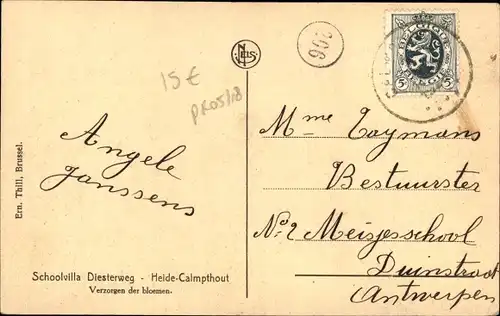 NELS
206
15 €
PR05/18
BELGIQUE
BELGIË
5 5
Angele
Janssens
Mme Taymans
Bestuurster
No 2 Meisjesschool
Duinstraat
Antwerpen
Ern. Thill, Brussel.
Schoolvilla Diesterweg - Heide-Calmpthout
Verzorgen der bloemen.